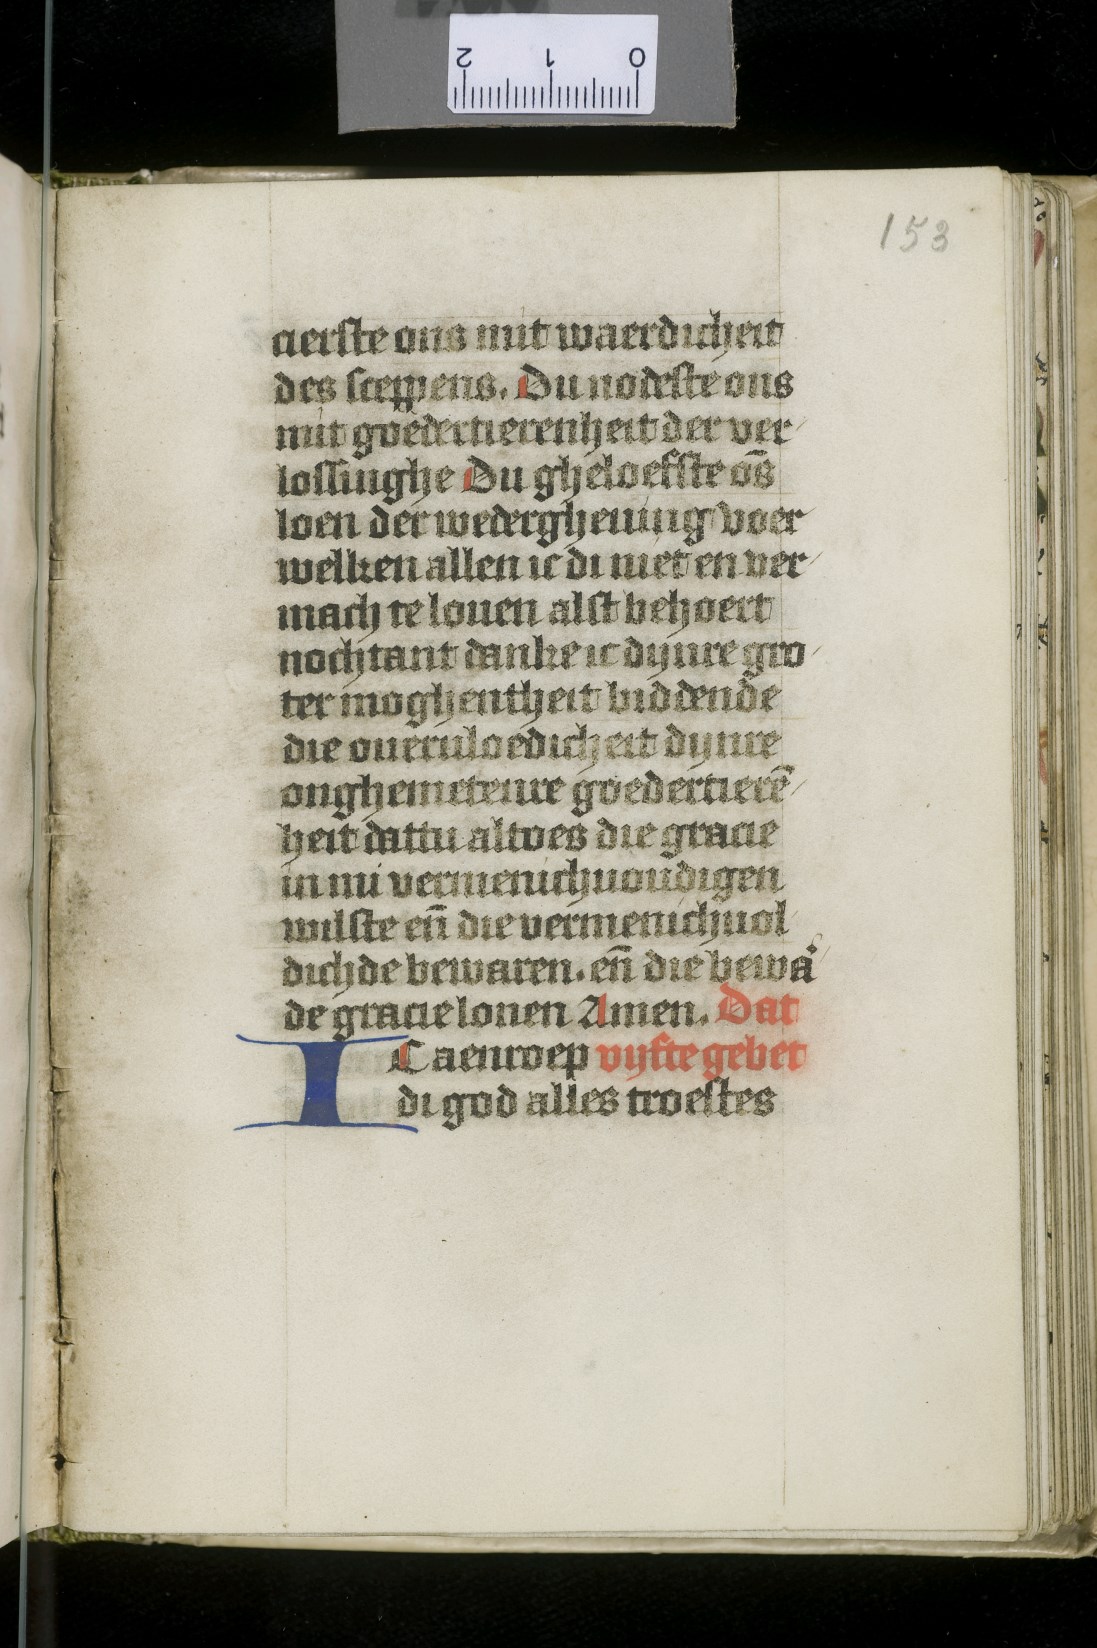 2 1 0
153
cierste ons mit waerdicheit
des sceppens. Du nodeste ons
mit goedertierenheit der ver
lossinghe Du gheloefste os̄
loen der wedergheuing voer
welken allen ic di niet en ver
mach te louen alst behoert
nochtant danke ic dijnre gro
ter moghentheit biddende
die oueruloedicheit dijnre
onghemetenre goedertierē
heit dattu altoes die gracie
in mi vermenichuoudigen
wilste en̄ die vermenichuol
dichde bewaren. en̄ die bewaͣ
de gracie louen Amen. Dat
IC aenroep vijfte gebet
di god alles troestes